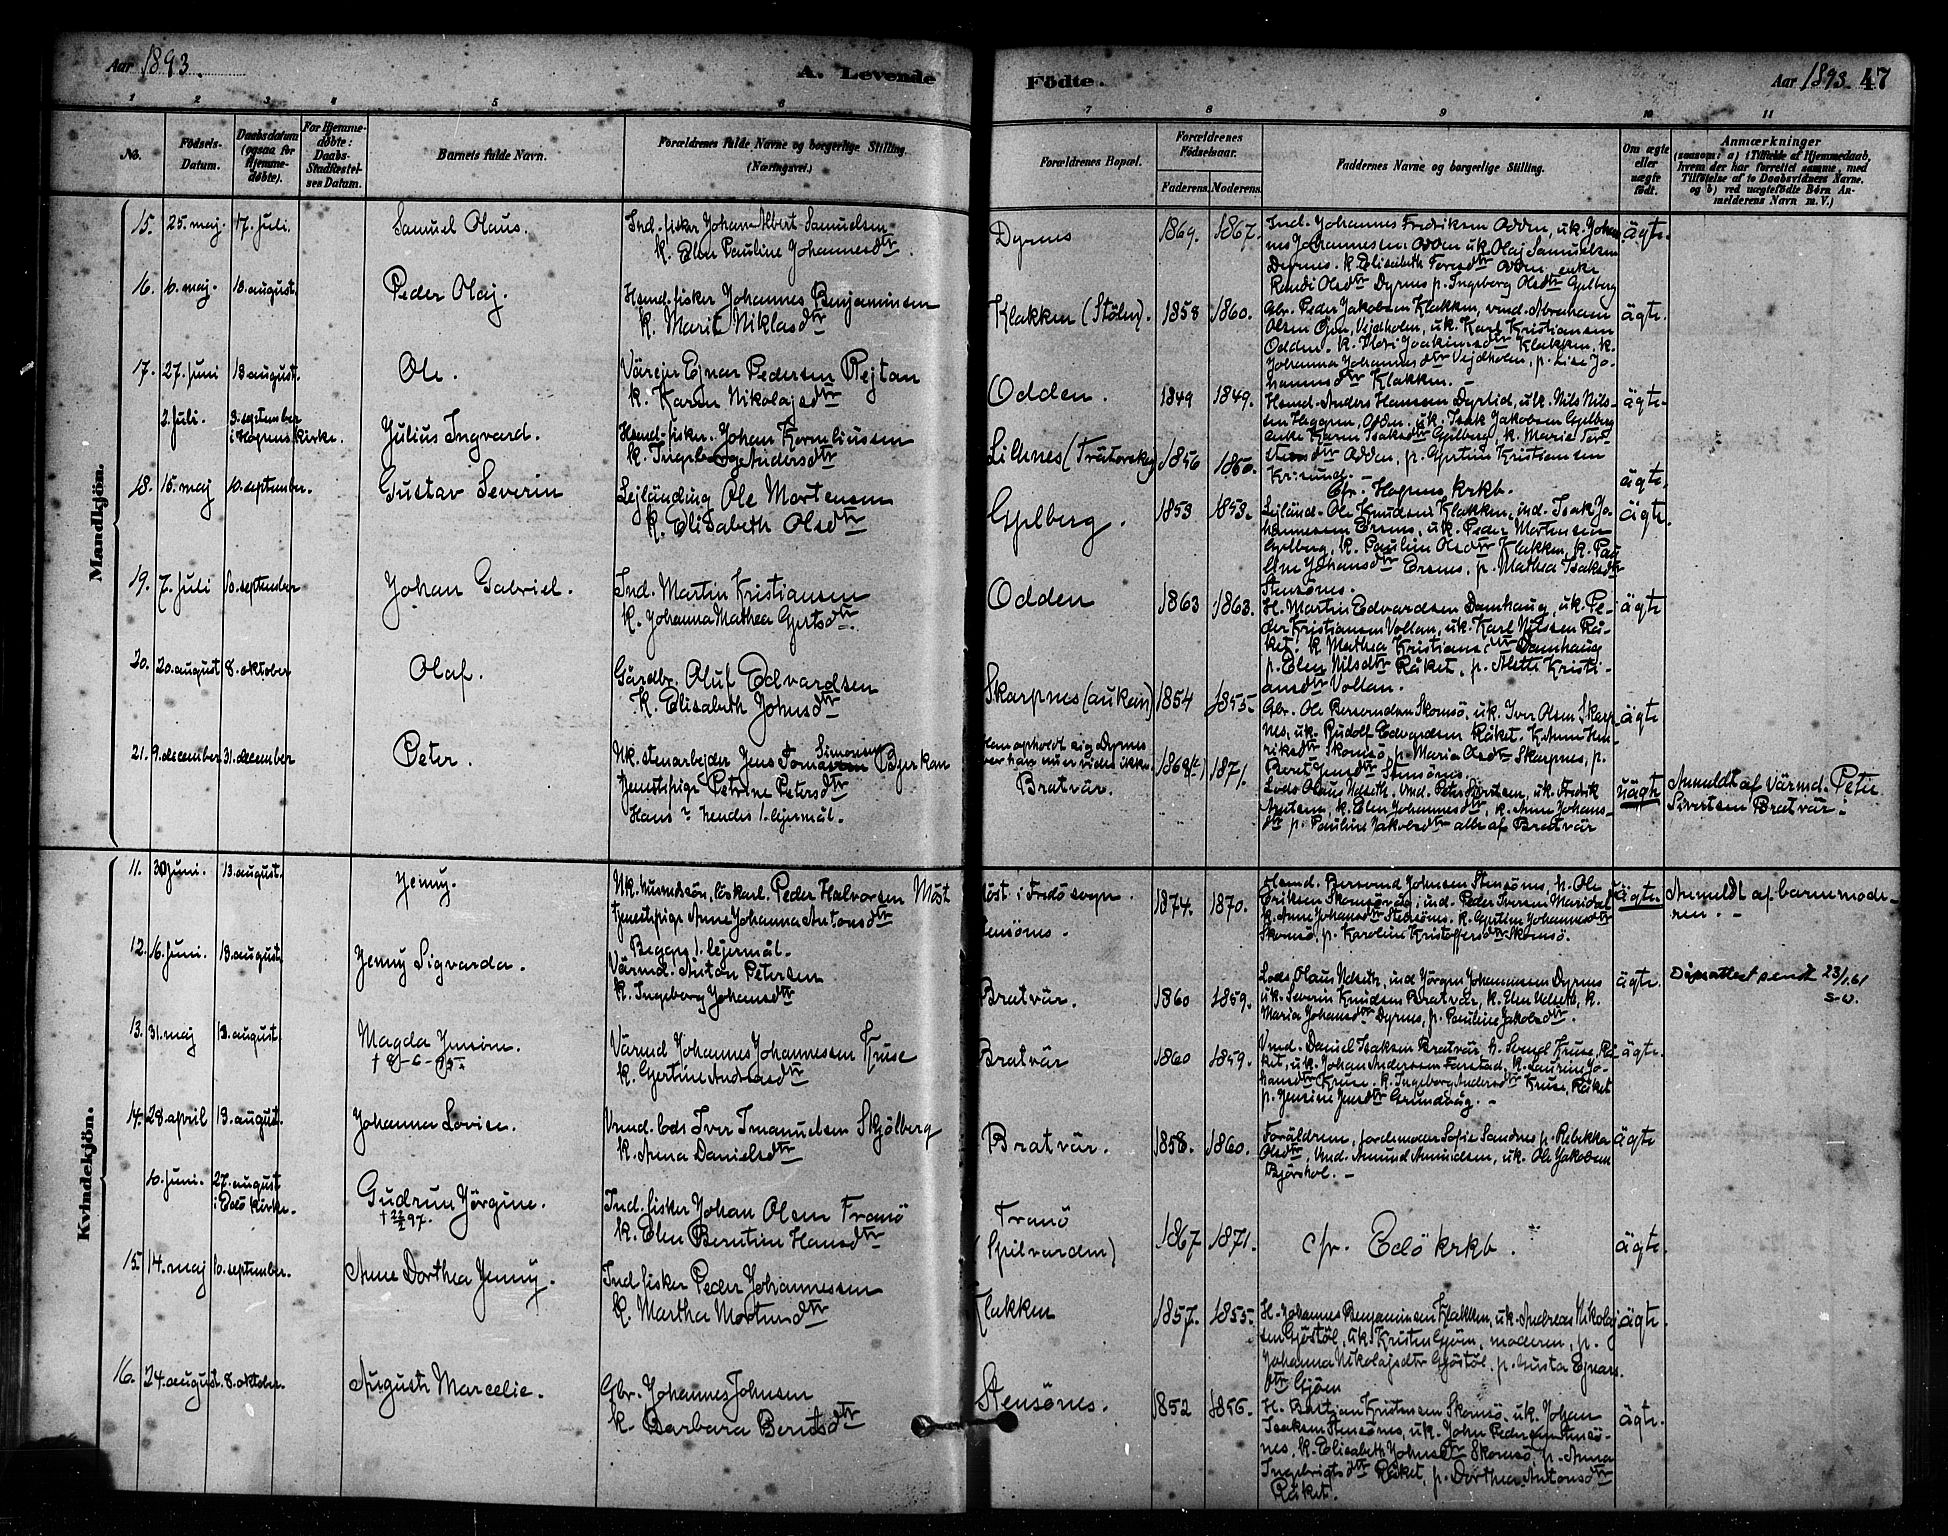 Aar 1893.
A. Levende
Födte.
Aar 1893. 47
1 2 3 4 5 6 7 8 9 10 11
No.
Födsels-Datum.
Daabsdatum (ogsaa for Hjemme-döbte).
For Hjemme-döbte: Daabs-Stadfæstel-ses Datum.
Barnets fulde Navn.
Forældrenes fulde Navne og borgerlige Stilling. (Næringsvei.)
Forældrenes Bopæl.
Forældrenes Födselsaar.
Faderens. Moderens.
Faddernes Navne og borgerlige Stilling.
Om ægte eller uægte födt.
Anmærkninger
(saasom: a) i Tilfælde af Hjemmedaab, hvem der har forrettet samme, med Tilföielse af to Daabsvidners Navne. og b) ved uægtefödte Börn An-melderens Navn m. V.)
Mandkjön.
15. 25. maj. 17. juli. Samuel Olaus.
Ind. fisker Johan Albert Samuelsen
k. Elen Pauline Johannesdtr.
Dyrnes 1869. 1867.
Ind. Johannes Fredriksen Odden, uk. Johan-
nes Johannesen Odden uk. Olaj Samuelsen
Dyrnes. k. Elisabeth Odden, enke
Randi Olsdtr Dyrnes p. Ingeborg Olsdtr Gjelberg
ägte.
16. 6. maj. 13. august. Peder Olaj.
Hsmd. fisker Johannes Benjaminsen
k. Marit Niklasdtr
Klakken (Stölen). 1858 1860.
Gbr. Peder Jakobsen Klakken, vmd. Abraham
Olsen Vejdholm, uk. Karl Kristiansen
Odden. k. Joakimsdtr Klakken, k.
Johanna Johannesdtr Vejdholm, p. Lise Jo-
hannesdtr Klakken. –
ägte.
17. 27. juni 13. august. Ole.
Värejer Ejnar Pedersen Rejtan
k. Karen Nikolajsdtr
Odden. 1849 1849.
Hsmd. Anders Hansen Dyrlid, uk. Nils Nils-
sen Haggen, Odden. uk. Isak Jakobsen Gjelberg
enke Karen Isaksdtr Gjelberg, k. Marie
Odden, p. Gjertine Kristiansen
Kr:sund. –
ägte
2. juli. 3. september i Hopens kirke. Julius Ingvard.
Hsmd. fisker. Johan Korneliussen
k. Ingeborg Andersdtr
Lillenes 1856 1850.
Cfr. Hopens krkb.
ägte.
18. 15. maj 10. september. Gustav Severin
Lejländing Ole Mortensen
k. Elisabeth Olsdtr
Gjelberg. 1853 1853.
Lejländ. Ole Knudsen Klakken, ind. Isak Jo-
hannesen Ersnes, uk. Peder Mortensen
Gjelberg, k. Pauline Olsdtr Klakken, k. Pau-
line Johansdtr Ersnes, p. Mathea Isaksdtr
Stensönes.
ägte.
19. 7. juli 10. september Johan Gabriel.
Ind. Martin Kristiansen
k. Johanna Mathea Gjertsdtr.
Odden 1863 1863.
H. Martin Edvardsen Damhaug, uk. Pe-
der Kristiansen Vollan, uk. Karl Nilssen Rå-
ket. k. Mathea Kristiansdtr Damhaug
p. Elen Nilsdtr Råket, p. Alette Kristi-
ansdtr Vollan.
ägte
20. 20. august 8. oktober Olaf.
Gårdbr. Oluf Edvardsen
k. Elisabeth Johnsdtr
Skarpnes (aukan) 1854 1855.
Gbr. Ole Skomsö. uk. Iver Olsen Skarp-
nes, uk. Rudolf Edvardsen Råket. k. Anne Hen-
riksdtr Skomsö, p. Maria Olsdtr Skarpnes, p.
Beret Jensdtr Stensönes.
ägte
21. 9. december 31. december Peter.
Uk. stenarbejder Jens Simonsen Bjerkan
tjenestepige Petrine Petersdtr
Hans ? hendes 1. lejermål.
Han opholdt sig Dyrnes
hvor han nu er vides ikke.
Bratvär. 1869 1871.
Lods Olaus Udseth. vmd. Peter Sivertsen, uk. Fredrik
Knutsen, k. Elen Johannesdtr, k. Anne Johans-
dtr p. Pauline Jakobsdtr alle af Bratvär
uägte
Anmeldt af Värmd. Peter
Sivertsen Bratvär.
Kvindekjön.
11. 30 juni. 13. august. Jenny.
Uk. husmdsön, löskarl. Peder Halvorsen Möst
tjenestepige Anne Johanna Antonsdtr
Begges 1. lejermål.
Möst i Fredö sogn.
Stensönes. 1874. 1870.
Hsmd. Bersvend Johnsen Stensönes, h. Ole
Eriksen Skomsövåg, ind. Peder Iversen
k. Anne Johansdtr Stensönes. k. Gjertine Johannesdtr
Skomsö, p. Karoline Kristoffersdtr Skomsö.
uägte.
Anmeldt af barnemode-
ren. –
12. 16. juni. 13. august. Jenny Sigvarda.
Värmd. Anton Petersen
k. Ingeborg Johansdtr
Bratvär. 1860 1859.
Lods Olaus Udseth, ind Jörgen Johannessen Dyrnes
uk. Severin Knudsen Bratvär, k. Elen Udseth, k.
Maria Johansdtr Dyrnes, p. Pauline Jakobsdtr.
ägte.
Dåpsattest sendt 23/1.61
S.W.
13. 31. maj 13. august. Magda Jensine.
† 8-6-95
Värmd Johannes Johannessen Kruse
k. Gjertine Andreasdtr
Bratvär 1860 1859.
Vmd. Daniel Isaksen Bratvär, h. Svend Kruse, Rå-
ket, uk. Johan Andersen Farstad, k. Laurine Jo-
hansdtr Kruse. k. Ingeborg Andersdtr Kruse, Råket
p. Jensine Jensdtr Grundvåg. –
ägte.
14. 28. april 13. august. Johanna Lovise.
Vmd. lods Iver Imanuelsen Skjölberg
k. Anna Danielsdtr
Bratvär. 1858. 1860.
Foräldrene, jordemoder Sofie Sandnes p. Rebekka
Olsdtr, Vmd. Amund Amundsen, uk. Ole Jakobsen
Björshol. –
ägte
10. juni. 27. august i Edö kirke. Gudrun Jörgine.
† 22/2 97.
Ind. fisker Johan Olsen Tranö
k. Elen Berntine Hansdtr
Tranö
(Spilvarden) 1867 1871.
cfr. Edö krkb.
ägte.
15. 14. maj 10. september. Anne Dorthea Jenny.
Ind fisker Peder Johannessen
k. Martha Mortensdtr
Klakken 1857. 1855.
H. Johannes Benjaminsen Klakken, uk. Andreas Nikolaj-
sen Gjöstöl, uk. Kristen Gjöen, moderen, p.
Johanna Nikolajsdtr Gjöstöl, p. Gusta Ejnars-
dtr Gjöen
ägte
16. 24. august. 8. oktober. Auguste Marcelie.
Gbr. Johannes Johnsen
k. Barbara Berntsdtr
Stensönes. 1852 1856.
H. Bastian Kristensen Skomsö. uk. Johan
Isaksen Stensönes, uk. John Pedersen Stensö-
nes, k. Elisabeth Johnsdtr Skomsö, p. Anna
Ingebrigtsdtr Råket, p. Dorthea Antonsdtr
Råket.
ägte.